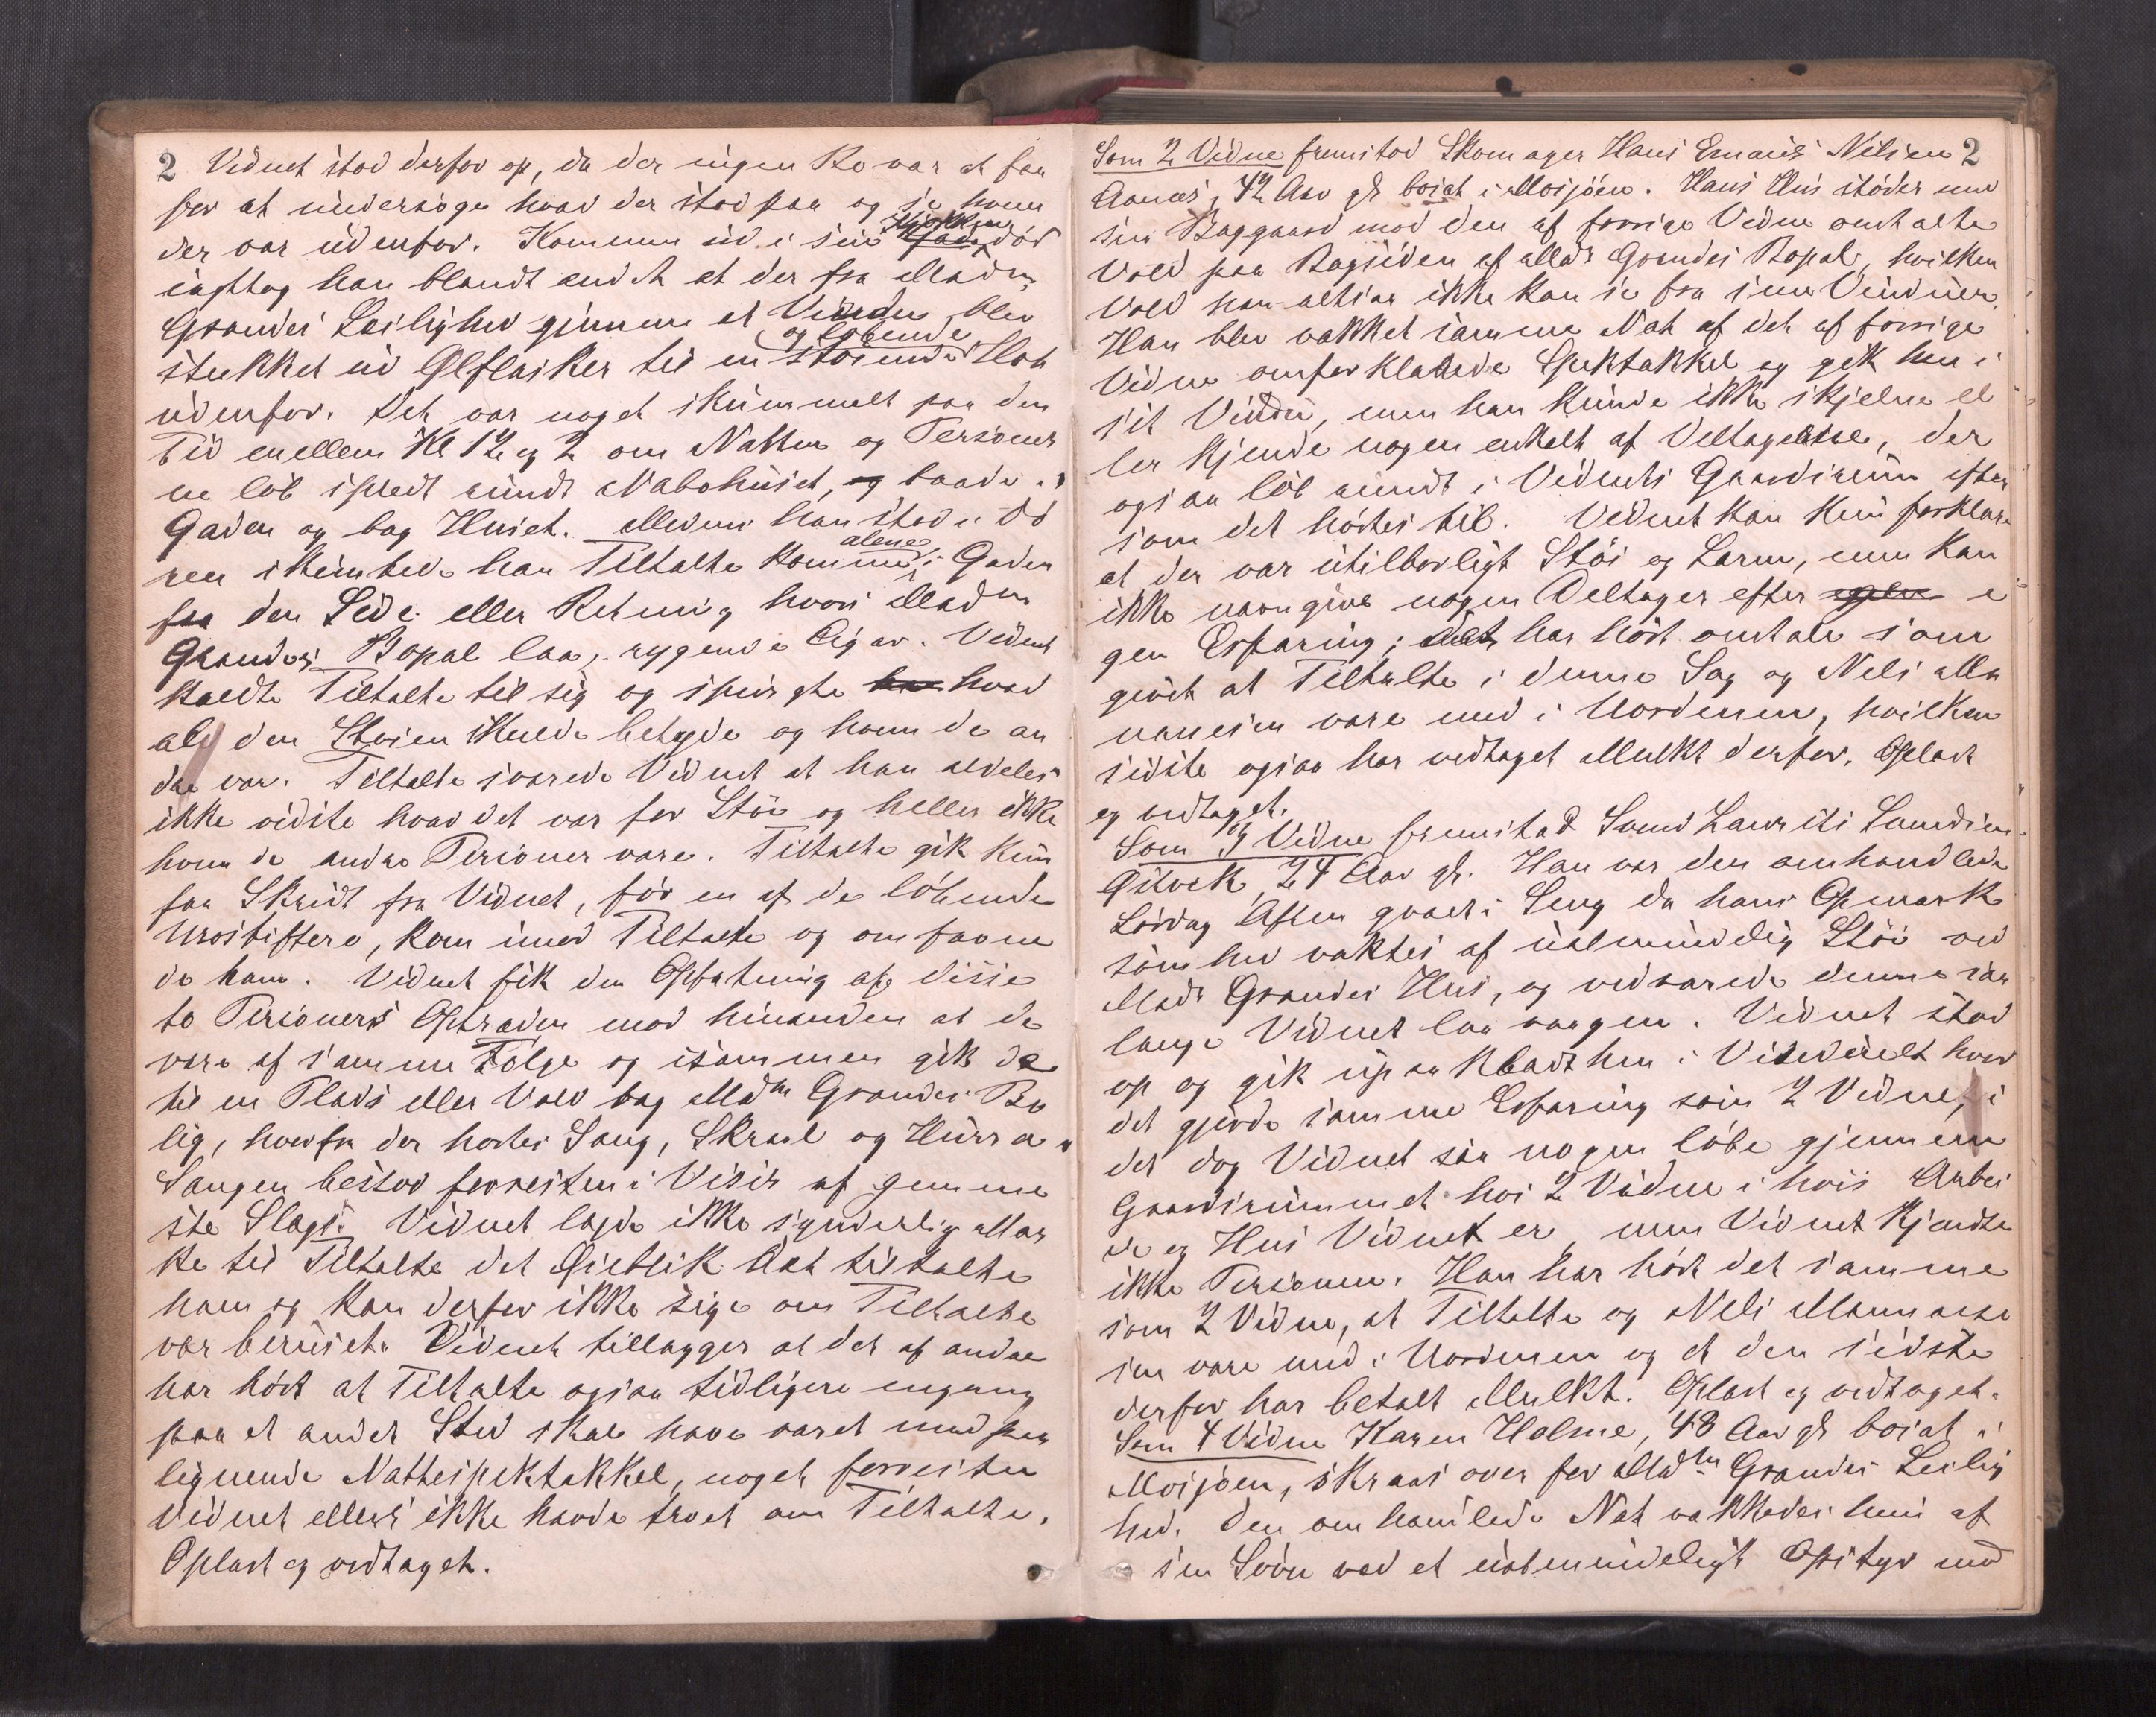 2 Vidnet stod derfor op, da der ingen Ro var at faa
for at undersøge hvad der stod paa og se hvem
der var udenfor. Kommen ud i sin Kjøkken dør
iagttog han blandt andet at der fra Madm
Grandes Leilighed gjennem et Vindu blev
stukket ud Ølflasker til en støiende og løbende Flok
udenfor. Det var noget skummelt paa den
Tid mellem Kl 12 og 2 om Natten og Personer
ne løb spredt rundt Nabohuset, og baade i
Gaden og bag Huset. Medens han stod i Dø
ren skimtede han Tiltalte komme alene i Gaden
fra den Side eller Retning hvori Madm
Grandes Bopæl laa, rygende Cigar. Vidnet
kaldte Tiltalte til sig og spurgte hvad
al den Støien skulde betyde og hvem de an
dre var. Tiltalte svarede Vidnet at han aldeles
ikke vidste hvad det var for Støi og heller ikke
hvem de andre Personer vare. Tiltalte gik kun
faa Skridt fra Vidnet, før en af de løbende
Urostiftere, kom imod Tiltalte og omfavne
de ham. Vidnet fik den Opfatning af disse
to Personers Optræden mod hinanden at de
vare af samme Følge og isammen gik de
til en Plads eller Vold bag Madm Grandes Bo
lig, hvorfra der hørtes Sang, Skraal og Hurra
Sangen bestod forresten i Visir af gemme
ste Slags. Vidnet lagde ikke synderlig Mær
ke til Tiltalte det Øieblik det tiltalte
ham og kan derfor ikke sige om Tiltalte
var beruset. Vidnet tillægger at det af andre
har hørt at Tiltalte ogsaa tidligere engang
paa et andet Sted skal have været med paa
lignende Nattespektakkel, noget forresten
Vidnet ellers ikke havde troet om Tiltalte.
Oplæst og vedtaget.
Som 2 Vidne fremstod Skomager Hans Emaus Nilsen 2
Aanes, 42 Aar gl bosat i Mosjøen. Hans Hus støder med
sin Baggaard mod den af forrige Vidne omtalte
Vold paa Bagsiden af Madm Grandes Bopæl, hvilken
Vold han altsaa ikke kan se fra sine Vinduer.
Han blev vækket samme Nat af det af forrige
Vidne omforklarede Spektakkel og gik hen i
sit Vindu, men han kunde ikke skjelne el
ler kjende nogen enkelt af Deltagerne, der
ogsaa løb rundt i Vidnets Gaardsrum efter
som det hørtes til. Vidnet kan kun forklare
at der var utilbørligt Støi og Larm, men kan
ikke navngive nogen Deltager efter e
gen Erfaring; det har hørt omtale som
givet at Tiltalte i denne Sag og Nels Ma
nassen vare med i Uordenen, hvilken
sidste ogsaa har vedtaget Mulkt derfor. Oplæst
og vedtaget.
Som 3 Vidne fremstod Svend Laurits Svendsen
Qitvek, 24 Aar gl. Han var den omhandlede
Lørdag Aften gaaet i Seng da hans Opmærk
somhed vaktes af ualmindelig Støi ved
Madm Grandes Hus, og vedvarede denne saa
længe Vidnet laa vaagen. Vidnet stod
op og gik upaaklædt hen i Vinduet hvor
det gjorde samme Erfaring som 2 Vidne, i
det dog Vidnet saa nogen løbe gjennem
Gaardsrummet hos 2 Vidne i hvis Arbei
de og Hus Vidnet er, men Vidnet kjendte
ikke Personen. Han har hørt det samme
som 2 Vidne, at Tiltalte og Nels Manasse
sen vare med i Uordenen og at den sidste
derfor har betalt Mulkt. Oplæst og vedtaget.
Som 4 Vidne Karen Holme, 48 Aar gl bosat i
Mosjøen, skraas over for Madm Grandes Leilig
hed. Den omhandlede Nat vækkedes hun af
sin Søvn ved et ualmindeligt Opstyr med